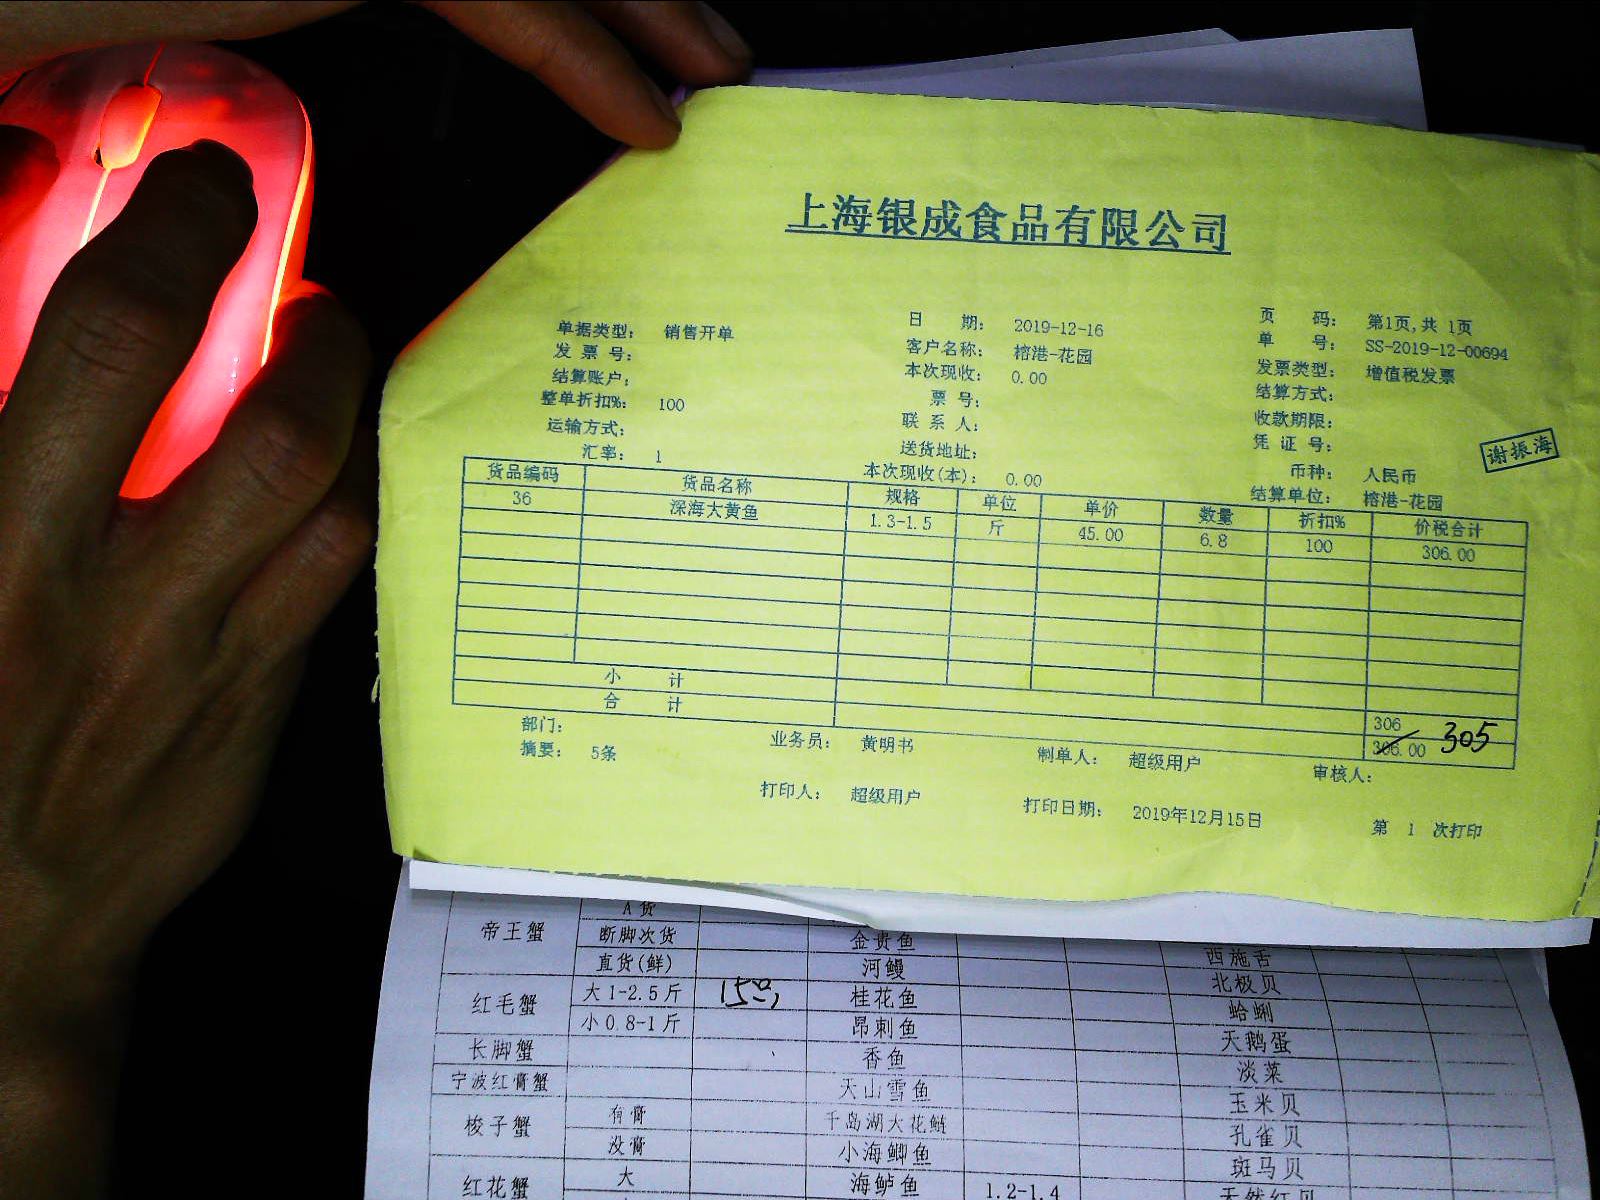 上海银成食品有限公司
单据类型: 销售开单 日 期: 2019-12-16 页 码: 第1页,共 1页
发 票 号: 客户名称: 榕港-花园 单 号: SS-2019-12-00694
结算账户: 本次现收: 0.00 发票类型: 增值税发票
整单折扣%: 100 票 号: 结算方式:
运输方式: 联 系 人: 收款期限:
汇率: 1 送货地址: 凭 证 号:
谢振海
本次现收(本): 0.00 币种: 人民币
结算单位: 榕港-花园
货品编码 货品名称 规格 单位 单价 数量 折扣% 价税合计
36 深海大黄鱼 1.3-1.5 斤 45.00 6.8 100 306.00
小 计 306
合 计 306.00 305
部门: 业务员: 黄明书 制单人: 超级用户 审核人:
摘要: 5条
打印人: 超级用户 打印日期: 2019年12月15日 第 1 次打印
帝王蟹 A 货
断脚次货 金贵鱼 西施舌
直货(鲜) 河鳗 北极贝
红毛蟹 大1-2.5斤 桂花鱼 蛤蜊
小0.8-1斤 昂刺鱼 天鹅蛋
长脚蟹 香鱼 淡菜
宁波红膏蟹 天山雪鱼 玉米贝
梭子蟹 有膏 千岛湖大花鲢 孔雀贝
没膏 小海鲫鱼 斑马贝
红花蟹 大 海鲈鱼 1.2-1.4 天然红贝